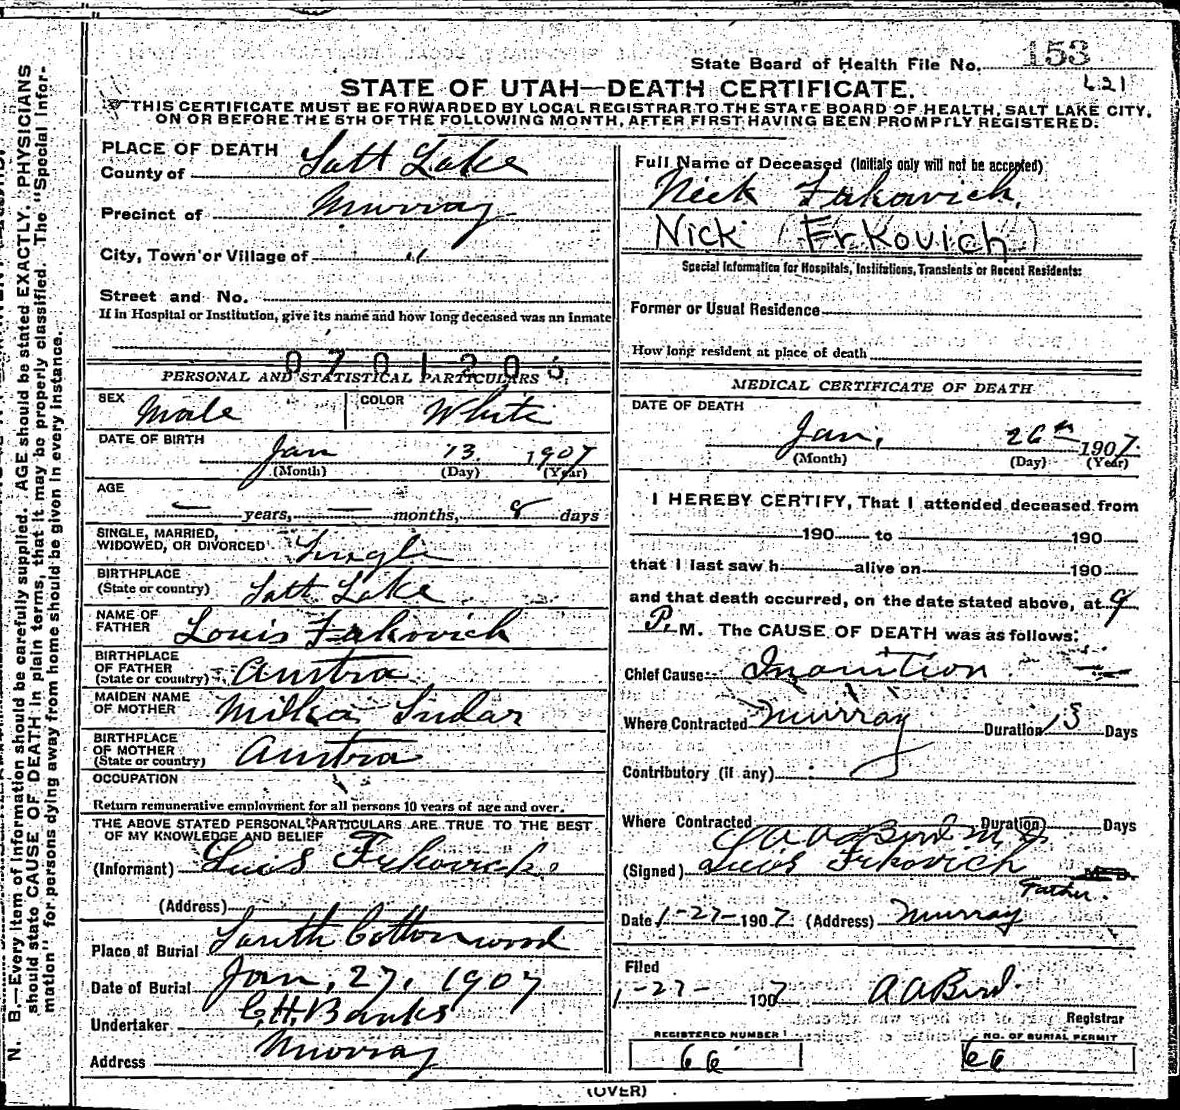 State Board of Health File No. 153
621
STATE OF UTAH—DEATH CERTIFICATE.
THIS CERTIFICATE MUST BE FORWARDED BY LOCAL REGISTRAR TO THE STATE BOARD OF HEALTH, SALT LAKE CITY,
ON OR BEFORE THE 5TH OF THE FOLLOWING MONTH, AFTER FIRST HAVING BEEN PROMPTLY REGISTERED.
PLACE OF DEATH
County of Salt Lake
Precinct of Murray
City, Town or Village of "
Street and No.
If in Hospital or Institution, give its name and how long deceased was an inmate
0701203
PERSONAL AND STATISTICAL PARTICULARS
SEX Male COLOR White
DATE OF BIRTH Jan 13 1907
(Month) (Day) (Year)
AGE
— years, — months, 8 days
SINGLE, MARRIED,
WIDOWED, OR DIVORCED Single
BIRTHPLACE
(State or country) Salt Lake
NAME OF
FATHER Louis Frkovich
BIRTHPLACE
OF FATHER
(State or country) Austra
MAIDEN NAME
OF MOTHER Milka Sudar
BIRTHPLACE
OF MOTHER
(State or country) Austra
OCCUPATION
Return remunerative employment for all persons 10 years of age and over.
THE ABOVE STATED PERSONAL PARTICULARS ARE TRUE TO THE BEST
OF MY KNOWLEDGE AND BELIEF
(Informant) Luis Frkovich
(Address)
Place of Burial South Cottonwood
Date of Burial Jan, 27, 1907
Undertaker C.H. Banks
Address Murray
Full Name of Deceased (Initials only will not be accepted)
Nick Frkovich.
Nick (Frkovich)
Special Information for Hospitals, Institutions, Transients or Recent Residents:
Former or Usual Residence
How long resident at place of death
MEDICAL CERTIFICATE OF DEATH
DATE OF DEATH
Jan, 26th 1907
(Month) (Day) (Year)
I HEREBY CERTIFY, That I attended deceased from
190 to 190
that I last saw h alive on 190
and that death occurred, on the date stated above, at 9
P. M. The CAUSE OF DEATH was as follows:
Chief Cause Inanition
Where Contracted Murray Duration 13 Days
Contributory (if any)
Where Contracted Duration Days
A A Bird M D
(Signed) Luis Frkovich M. D.
Father.
Date 1-27-1907 (Address) Murray
Filed
1-27- 1907 A A Bird.
Registrar
REGISTERED NUMBER
66
NO. OF BURIAL PERMIT
66
(OVER)
N. B.—Every item of information should be carefully supplied. AGE should be stated EXACTLY. PHYSICIANS
should state CAUSE OF DEATH in plain terms, that it may be properly classified. The "Special Infor-
mation" for persons dying away from home should be given in every instance.